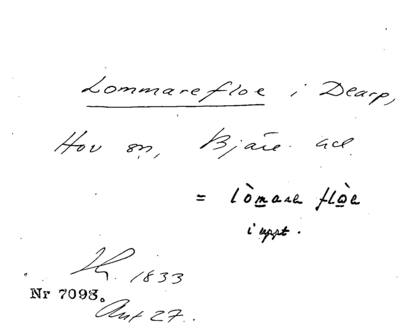 Lommarefloe i Dearp,
Hov sn, Bjäre hd.
= lòmare flòe
i uppt.
1833
Nr 7098.
Ant 27.